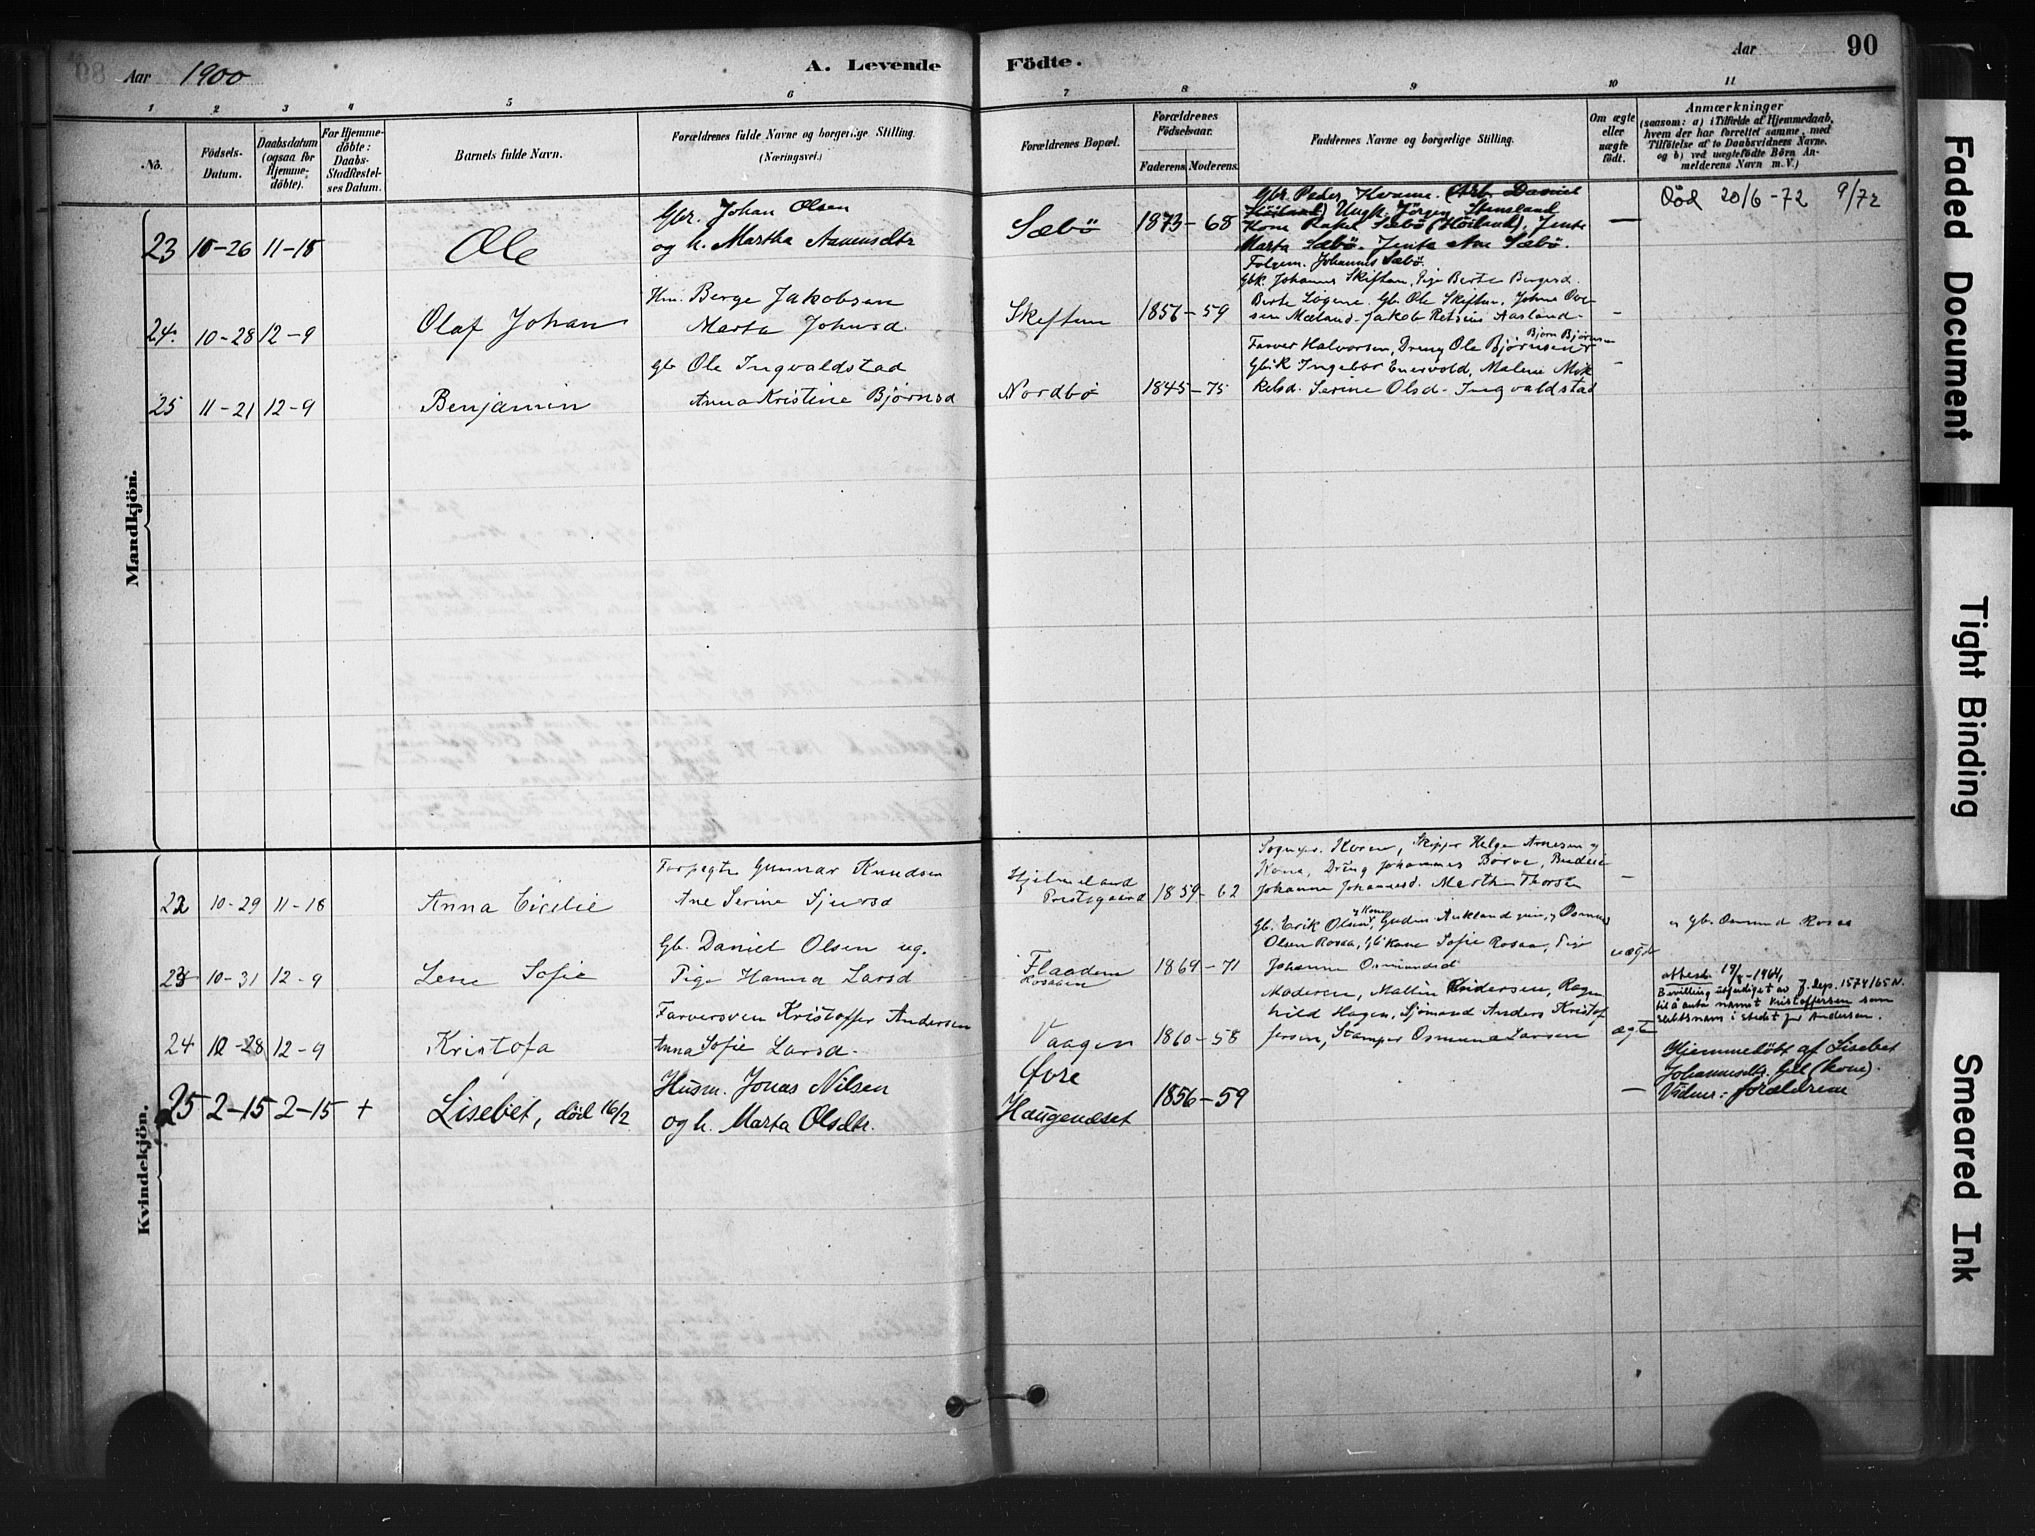 Aar 1900
A. Levende
Födte.
Aar
90
1 2 3 4 5 6 7 8 9 10 11
No.
Födsels-
Datum.
Daabsdatum
(ogsaa for
Hjemme-
döbte).
For Hjemme-
döbte:
Daabs-
Stadfæstel-
ses Datum.
Barnets fulde Navn.
Forældrenes fulde Navne og borgerlige Stilling.
(Næringsvei.)
Forældrenes Bopæl.
Forældrenes
Födselsaar.
Faderens. Moderens.
Faddernes Navne og borgerlige Stilling.
Om ægte
eller
uægte
födt.
Anmærkninger
(saasom: a) i Tilfælde af Hjemmedaab,
hvem der har forrettet samme, med
Tilföielse af to Daabsvidners Navne.
og b) ved uægtefödte Börn An-
melderens Navn m. V.)
Mandkjön.
23 10-26 11-18 Ole
Gbr. Johan Olsen
og h. Martha Aamundsdtr
Sæbö 1873-68
Gbr. Peder Kvame. (Arb. Daniel
Höiland) Ungk. Jörgen Stensland
Kone Rakel Sæbö (Höiland), Jente
Marta Sæbö. Jente Ane Sæbö.
Folgem. Johannes Sæbö.
—
Död 20/6-72 9/72
24. 10-28 12-9 Olaf Johan
Hm. Berge Jakobsen
Marta Johnsd.
Skiftun 1857-59
Gbk. Johannes Skiftun, Pige Berte Bergesd.
Berte Ole Skiftun, Johne Ove-
sen Mæland. Jakob Aasland
-
25 11-21 12-9 Benjamin
Gb Ole Ingvaldstad
Anna Kristine Bjørnsd
Nordbø 1845-75
Bjørn Bjørnsen
Farver Halvorsen, Dreng Ole Bjørnsen
Gbk Ingebor Enervold, Malene Mik
kelsd. Serine Olsd. Ingvaldstad
-
Kvindekjön.
22 10-29 11-18 Anna Cicilie
Forpagter Gunnar Knudsen
Ane Serine Sjursd
Hjelmeland
Prestegaard 1859-62
Sognepr. Koren, Skipper Helge Arnesen og
Kona, Dreng Johannes Børve, Budeie
Johanne Johannesd. Merthe Thorsen
-
23 10-31 12-9 Lene Sofie
Gb. Daniel Olsen ug.
Pige Hanna Larsd
Flaaden
Rosaaen 1869-71
Gb. Erik Olsen og Kone, Gudm Aukland, Osmun
Olsen Rosaa, Gbk Kone Sofie Rosaa, Pige
Johanne Osmundsd
uægte
Gb. Osmund Rosaa
24 10-28 12-9 Kristofa
Farversven Kristoffer Andersen
Anna Sofie Larsd.
Vaagen 1860-58
Moderen, Mallin Endersen, Ragn
hild Hagen, Sjömand Anders Kristof
fersen, Stamper Osmund Larsen
ægte
attest 19/8-1964
Bevilling utferdiget av J. dep. 1574/65 N.
til å anta navnet Kristoffersen som
slektsnavn i stedet for Andersen.
25 2-15 2-15 + Lisebet, död 16/2
Husm. Jonas Nilsen
og h. Marta Olsdtr.
Övre
Haugenæset 1856-59
—
Hjemmedöbt af Lisebet
Johannesdtr. Gil (kone).
Vidner: forældrene
Faded Document
Tight Binding
Smeared Ink